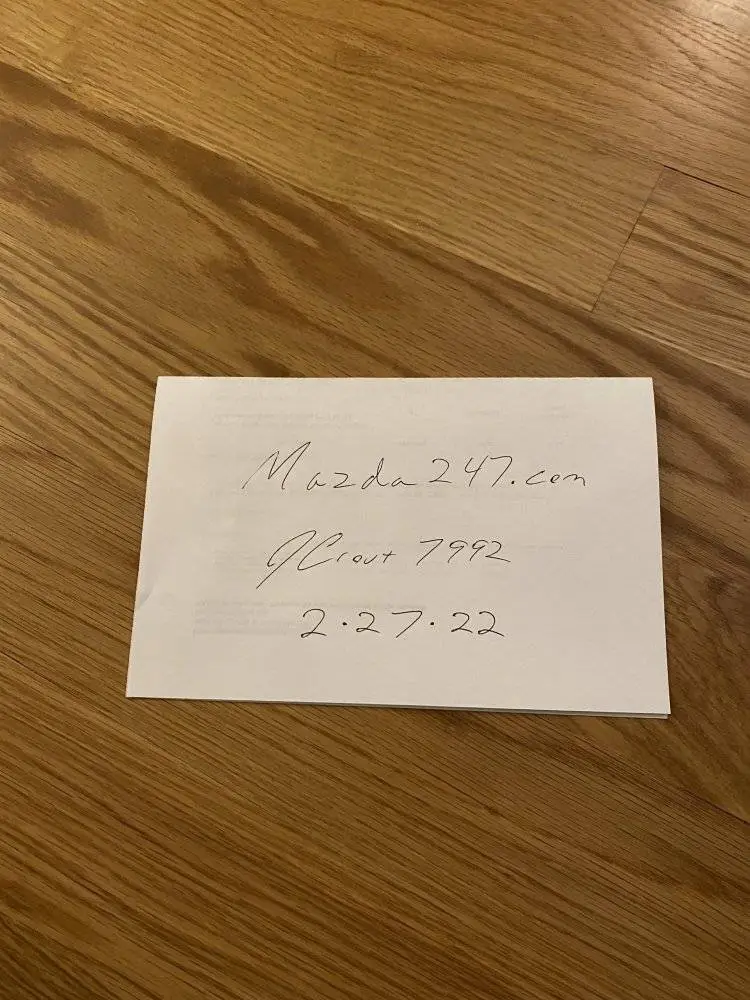 Mazda247.com
JCrout 7992
2.27.22